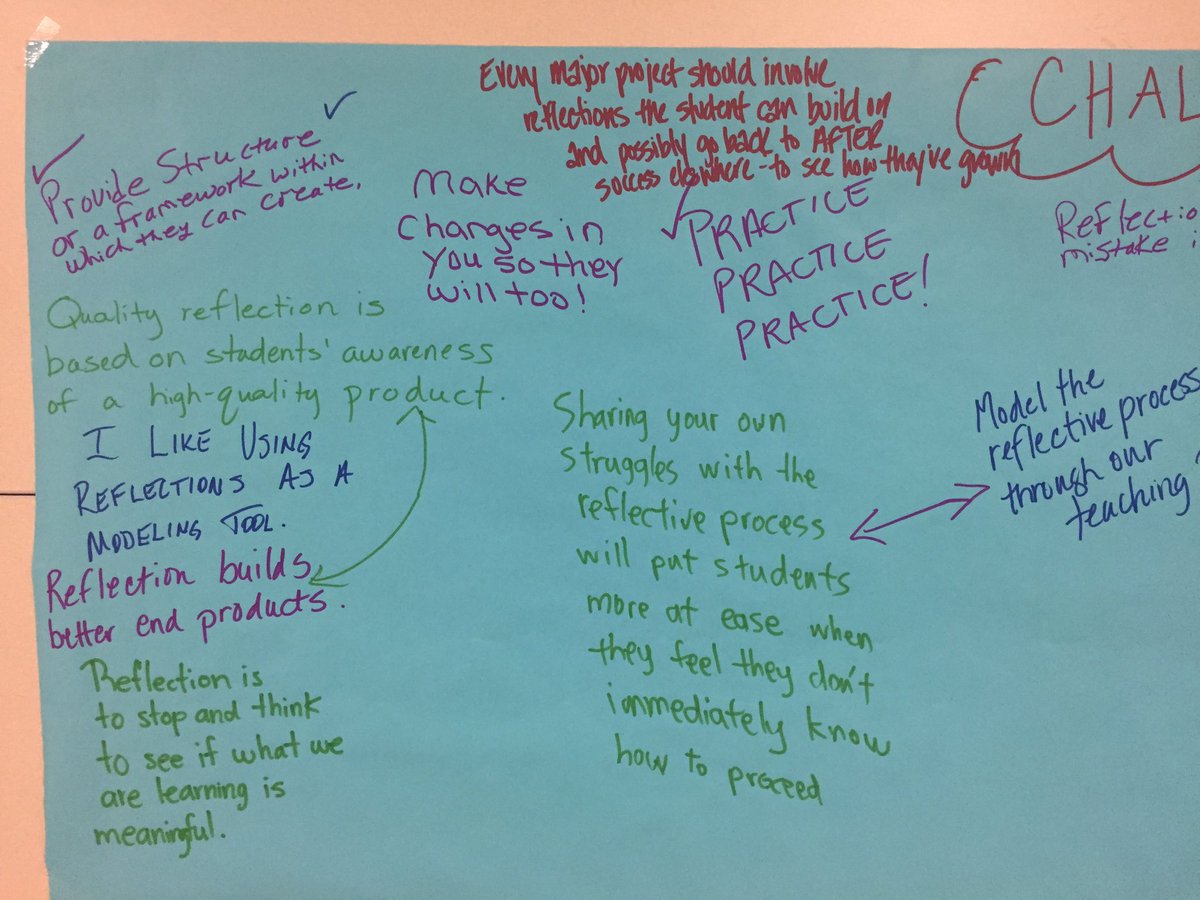 Every major project should involve
reflections the student can build on
and possibly go back to AFTER
success elsewhere - to see how they've grown
CCHAL
Provide Structure
or a framework within
which they can create.
Make
Changes in
you so they
will too!
PRACTICE
PRACTICE
PRACTICE!
Reflectio
mistake i
Quality reflection is
based on students' awareness
of a high-quality product.
I LIKE USING
REFLECTIONS AS A
MODELING TOOL.
Reflection builds
better end products.
Reflection is
to stop and think
to see if what we
are learning is
meaningful.
Sharing your own
struggles with the
reflective process
will put students
more at ease when
they feel they don't
immediately know
how to proceed
Model the
reflective process
through our
teaching